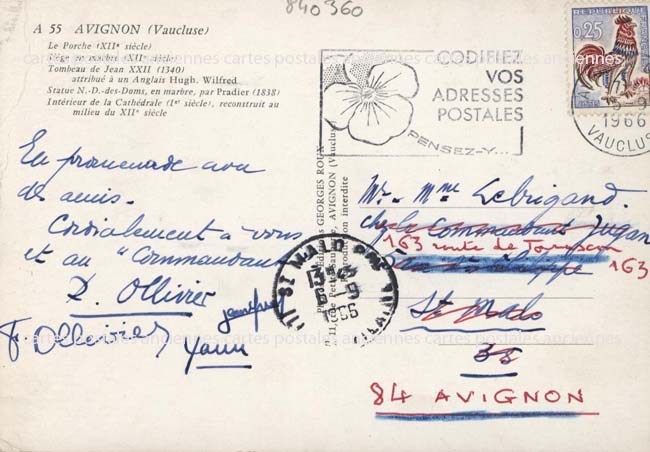 840360
A 55 AVIGNON (Vaucluse)
Le Porche (XIIe siècle)
Siège en marbre (XIIe siècle)
Tombeau de Jean XXII (1340)
attribué à un Anglais Hugh. Wilfred
Statue N.-D.-des-Doms, en marbre, par Pradier (1838)
Intérieur de la Cathédrale (Ier siècle), reconstruit au
milieu du XIIe siècle
CODIFIEZ
VOS
ADRESSES
POSTALES
PENSEZ-Y...
0,25
1966
VAUCLUSE
En promenade avec
des amis.
Cordialement à vous
et au "Commandant
P. Ollivier
F. Ollivier
Yann
GEORGES ROUX
AVIGNON (Vaucluse)
Reproduction interdite
ST MALO
1966
Mr. Mme Lebrigand.
chez le Commandant Jugan
163 route de Tarascon
163
St Malo
35
84 AVIGNON
cartes postales anciennes